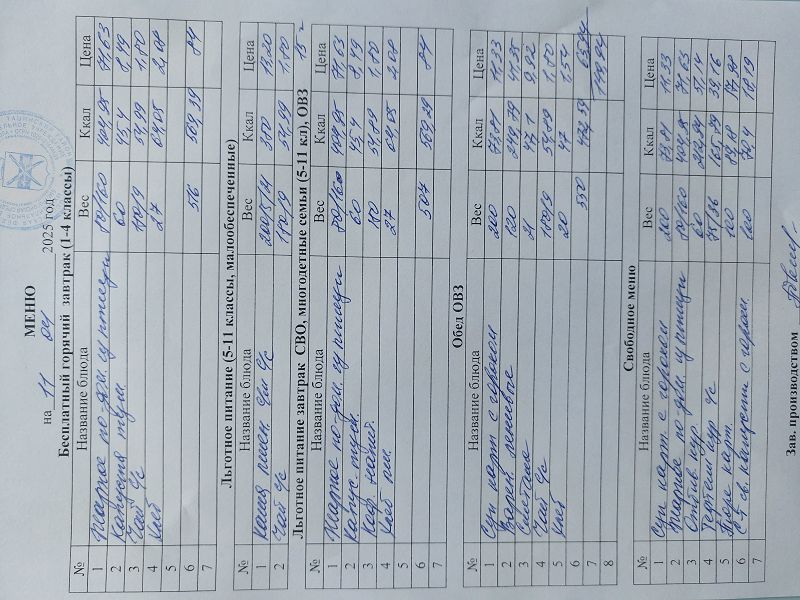 МЕНЮ
на 11 04 2025 год
Бесплатный горячий завтрак (1-4 классы)
№ Название блюда Вес Ккал Цена
1 Жаркое по-дом. с/ птицы 80/160 404,85 71,63
2 Капуста туш. 60 45,4 8,49
3 Чай с/с 180/9 54,99 1,80
4 Хлеб 27 64,05 2,08
5
6 516 569,29 84
7
Льготное питание (5-11 классы, малообеспеченные)
№ Название блюда Вес Ккал Цена
1 Каша 200/5/21 350 13,20
2 Чай с/с 180/9 54,99 1,80
Льготное питание завтрак СВО, многодетные семьи (5-11 кл), ОВЗ
№ Название блюда Вес Ккал Цена
1 Жаркое по-дом. с/ птицы 80/160 404,85 71,63
2 Капус туш. 60 45,4 8,49
3 180 54,99 1,80
4 Хлеб 27 64,05 2,08
5
6 507 569,29 84
7
Обед ОВЗ
№ Название блюда Вес Ккал Цена
1 Суп карт с горохом 200 73,84 11,33
2 Варен ленивые 120 249,79 41,35
3 Сметана 21 47,1 9,92
4 Чай с/с 180/9 54,99 1,80
5 Хлеб 20 47 1,54
6 550
7
8
Свободное меню
№ Название блюда Вес Ккал Цена
1 Суп карт с горохом 200 73,84 11,33
2 Жаркое по-дом. с/ птицы 80/160 404,8 71,63
3 Отбив. кур. 60 57,14
4 Тефтели кур с/с 75/36 165,89 39,16
5 Пюре карт. 100
6 С-т св. капусты с горохом 100 70,4 16,19
7
Зав. производством